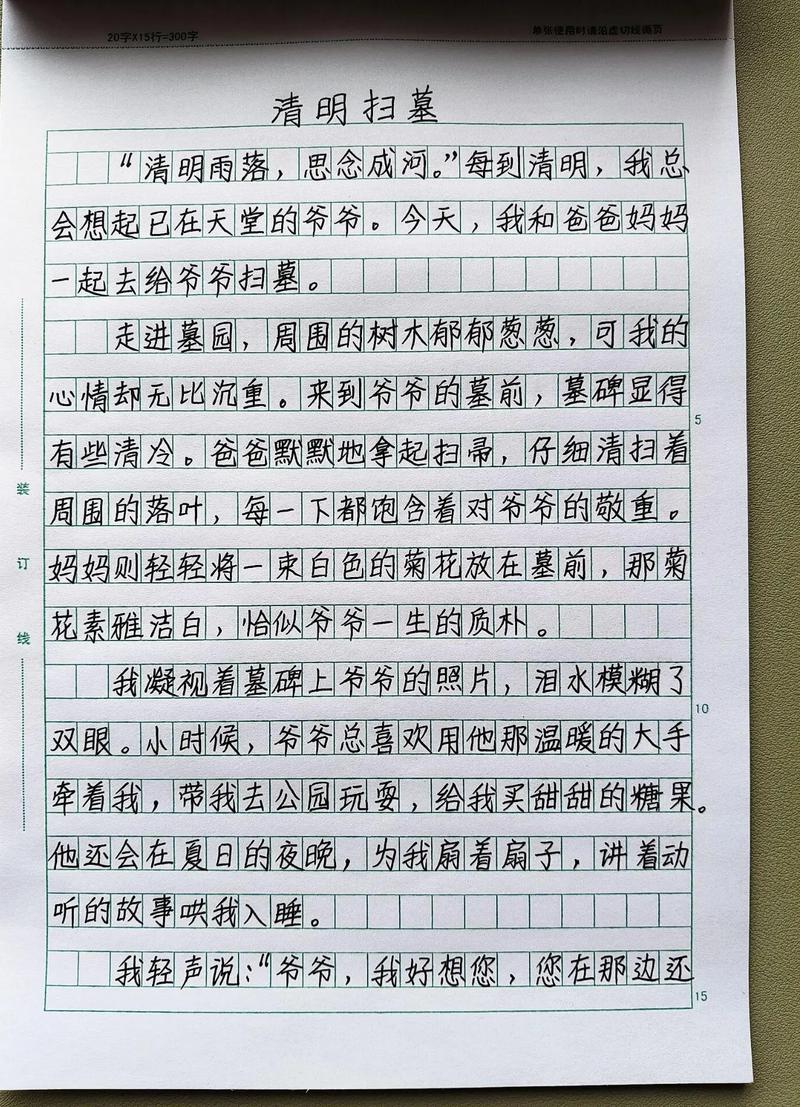 20字X15行=300字
单张使用时请沿虚切线撕页
清明扫墓
“清明雨落，思念成河。”每到清明，我总
会想起已在天堂的爷爷。今天，我和爸爸妈妈
一起去给爷爷扫墓。
走进墓园，周围的树木郁郁葱葱，可我的
心情却无比沉重。来到爷爷的墓前，墓碑显得
5
有些清冷。爸爸默默地拿起扫帚，仔细清扫着
周围的落叶，每一下都饱含着对爷爷的敬重。
妈妈则轻轻将一束白色的菊花放在墓前，那菊
花素雅洁白，恰似爷爷一生的质朴。
我凝视着墓碑上爷爷的照片，泪水模糊了
10
双眼。小时候，爷爷总喜欢用他那温暖的大手
牵着我，带我去公园玩耍，给我买甜甜的糖果。
他还会在夏日的夜晚，为我扇着扇子，讲着动
听的故事哄我入睡。
我轻声说：“爷爷，我好想您，您在那边还
15
装
订
线